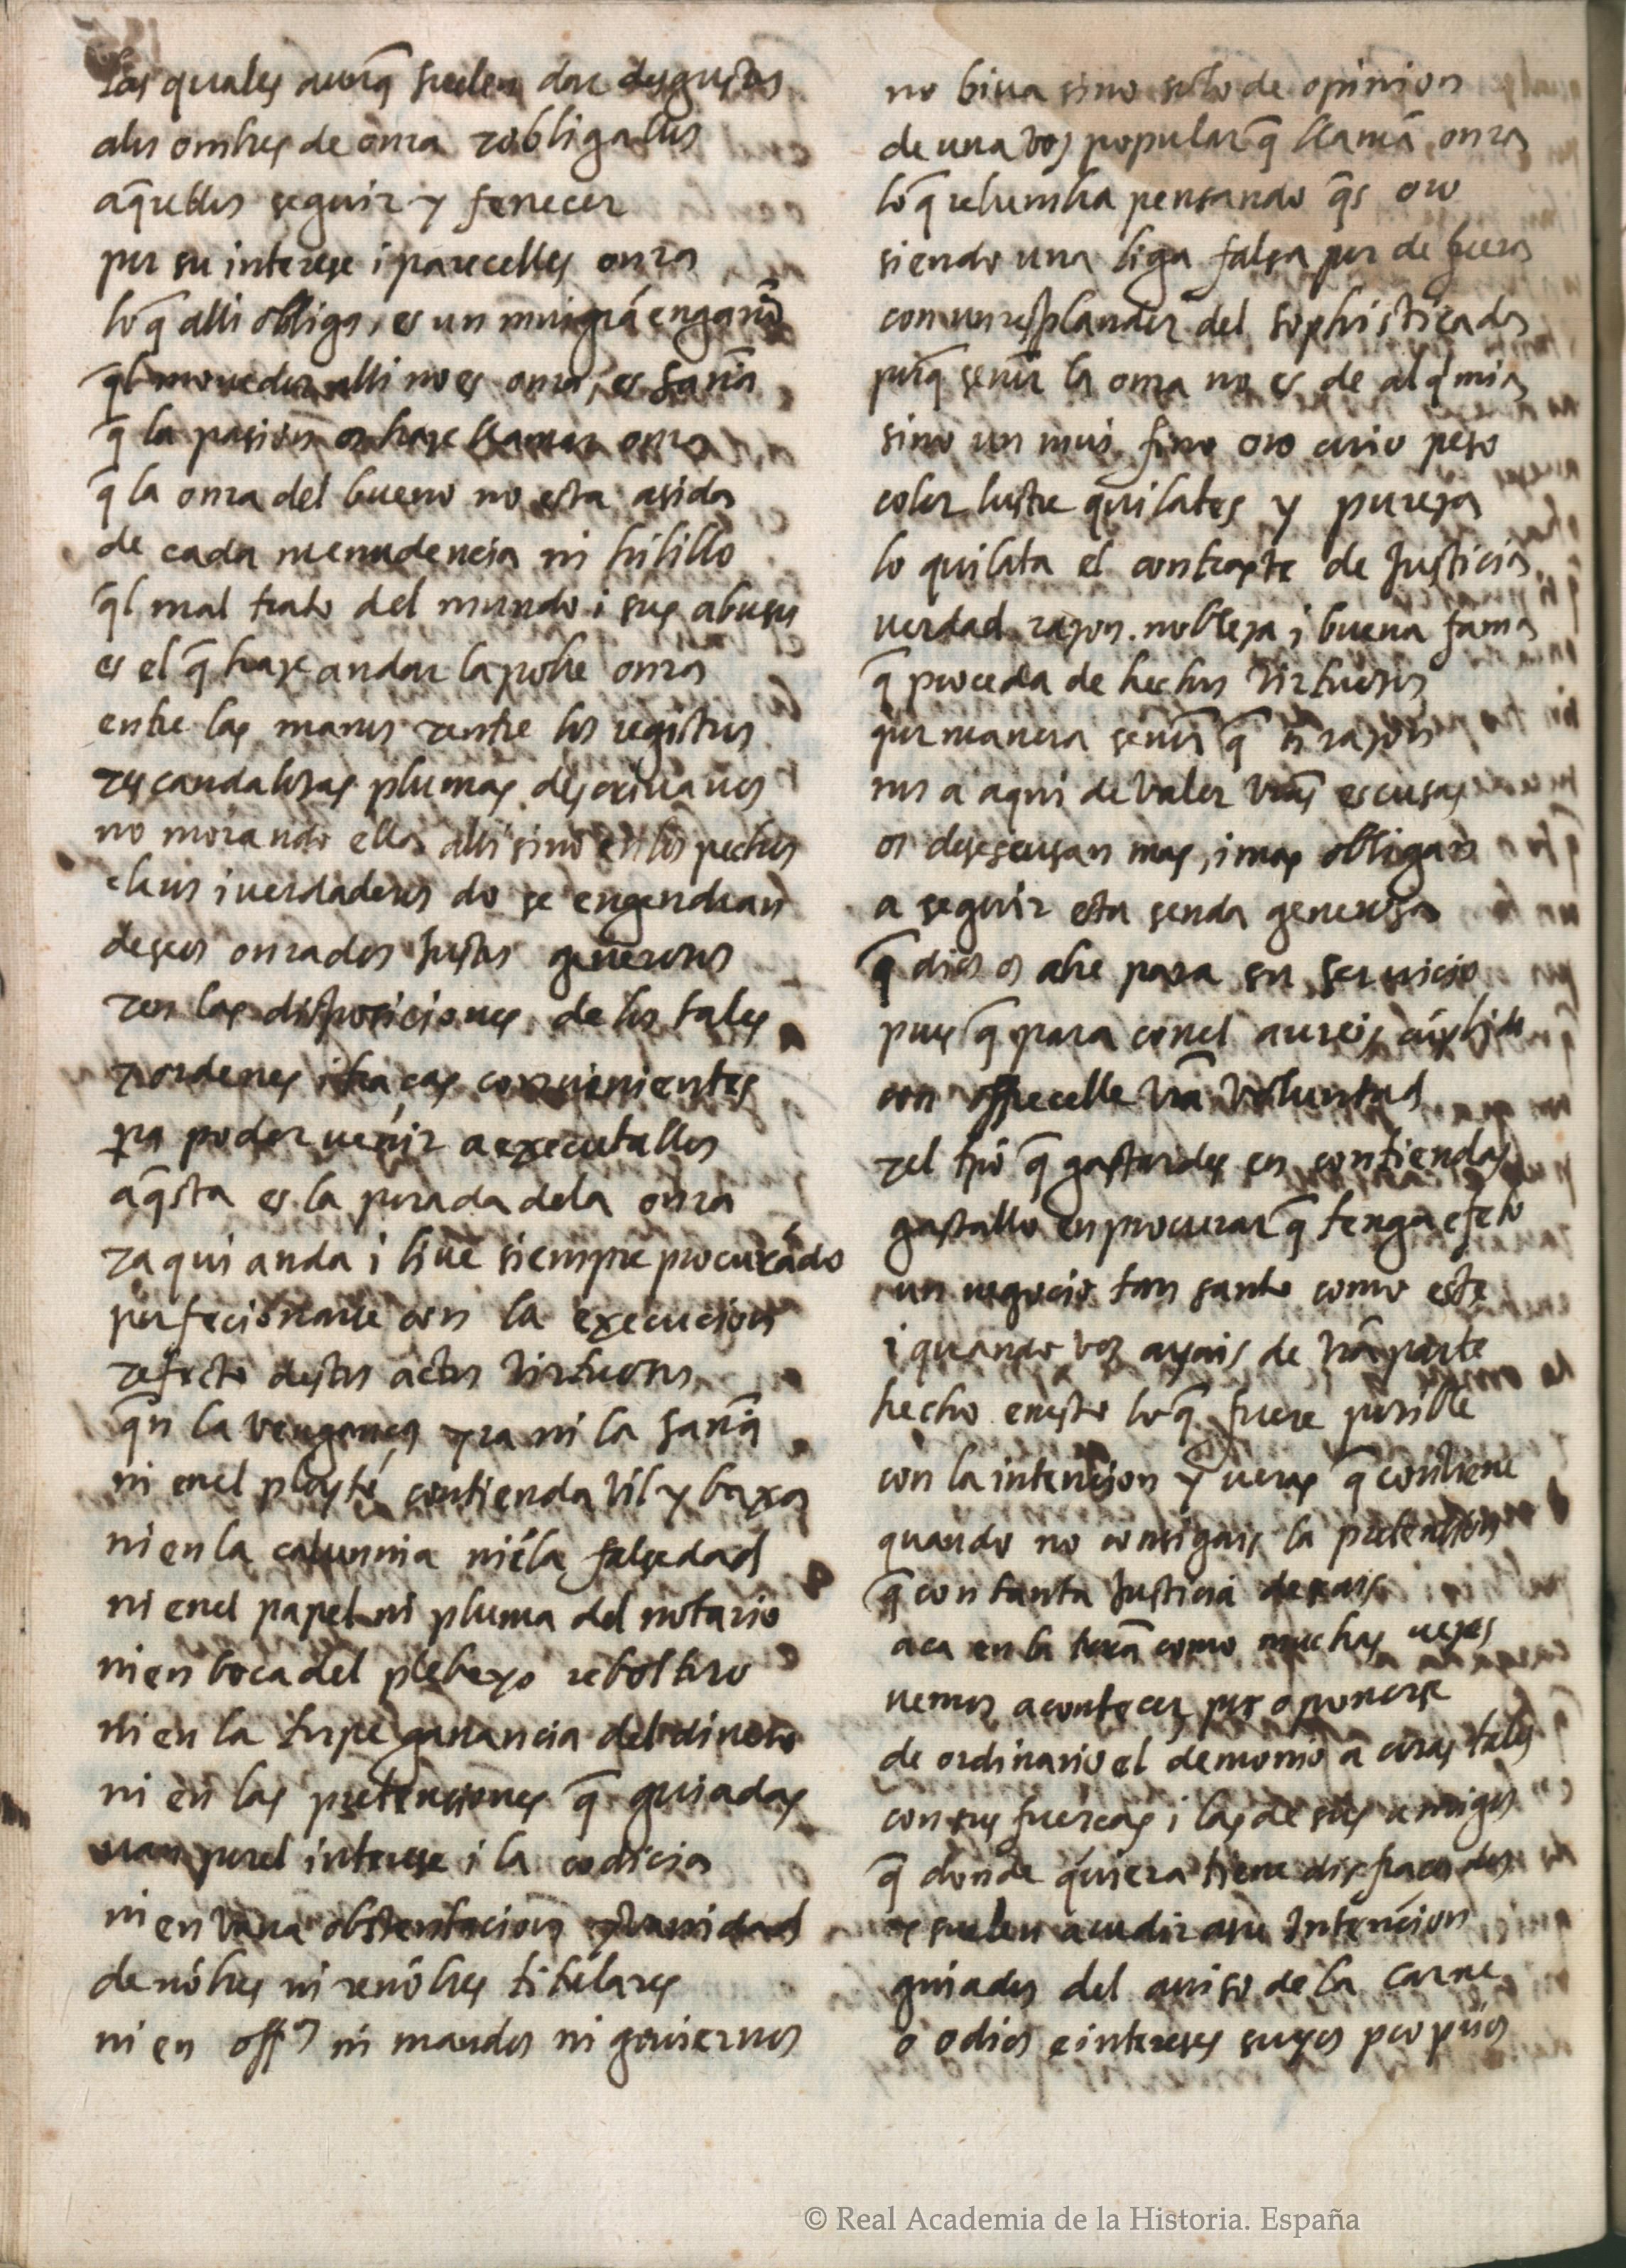 las quales aunq̃ suelen dar desgustos
alos ombres de onra τ obligallos
aq̃rellos seguir y fenecer
por su interese i parecelles onra
lo q̃ alli obliga, es un mui grã engaño
q̃l mouedor alli no es onra, es saña
q̃ la pasion os haze llamar onra
q̃ la onra del bueno no esta asida
de cada menudencia ni hilillo
q̃l mal trato del mundo i sus abusos
es el q̃ haze andar la pobre onra
entre las manos τ entre los registros
τ escandalosas plumas descriuanos
no morando ella alli sino en los pechos
claros i verdaderos do se engendran
deseos onrados Justos generosos
τ en las disposiciones de los tales
τ ordenes i traças conuinientes
pa poder uenir a executallos
aq̃sta es la posada dela onra
τ aqui anda i biue siempre procurãdo
perfecionarse con la execucion
τ efecto destos actos virtuosos
q̃n la vengança yra ni la saña
ni enel pleyto, contienda vil y baxa
ni en la calunnia ni ẽ la falsedad
ni enel papel ni pluma del notario
ni en boca del plebeyo reboltoso
ni en la torpe ganancia del dinero
ni en las pretensiones q̃ guiadas
uan porel interese i la codicia
ni en vana obstentacion y vanidad
de nõbres ni renõbres titulares
ni en offos ni mandos ni gouiernos
no biua sino solo de opinion
de una voz popular q̃ llamã onra
lo q̃ relumbra pensando q̃s oro
siendo una liga falsa por de fuera
con un resplandor del sophisticada
porq̃ señor la onra no es de alq̃mia
sino un mui fino oro cuio peso
color lustre quilates y pureza
lo quilata el contraste de Justicia
uerdad razon. nobleza i buena fama
q̃ proceda de hechos virtuosos
q̃ por manera señor q̃ sin razon
nos a aqui de valer vr̃as escusas
os desescusan mas, i mas obligan
a seguir esta senda generosa
q̃ dios os abre para su seruicio
pues q̃ para conel aureis cũplido
con offrecelle vr̃a voluntad
τ el tp̃o q̃ gastardes en contiendas
gastallo en procurar q̃ tenga efeto
un negocio tan santo como este
i quando vos ayais de vr̃a parte
hecho enesto lo q̃ fuere posible
con la intencion y ueras q̃ conuiene
quando no consigais la pretension
q̃ con tanta Justicia deseais
aca en la tierra como muchas uezes
uemos acontecer por oponerse
de ordinario el demonio a cosas tales
con sus fuerças i las de sus amigos
q̃ donde quiera tiene disfraçados
y suelen acudir a su Intencion
guiados del auiso de la carne
o odios e intereses suyos propios
© Real Academia de la Historia. España